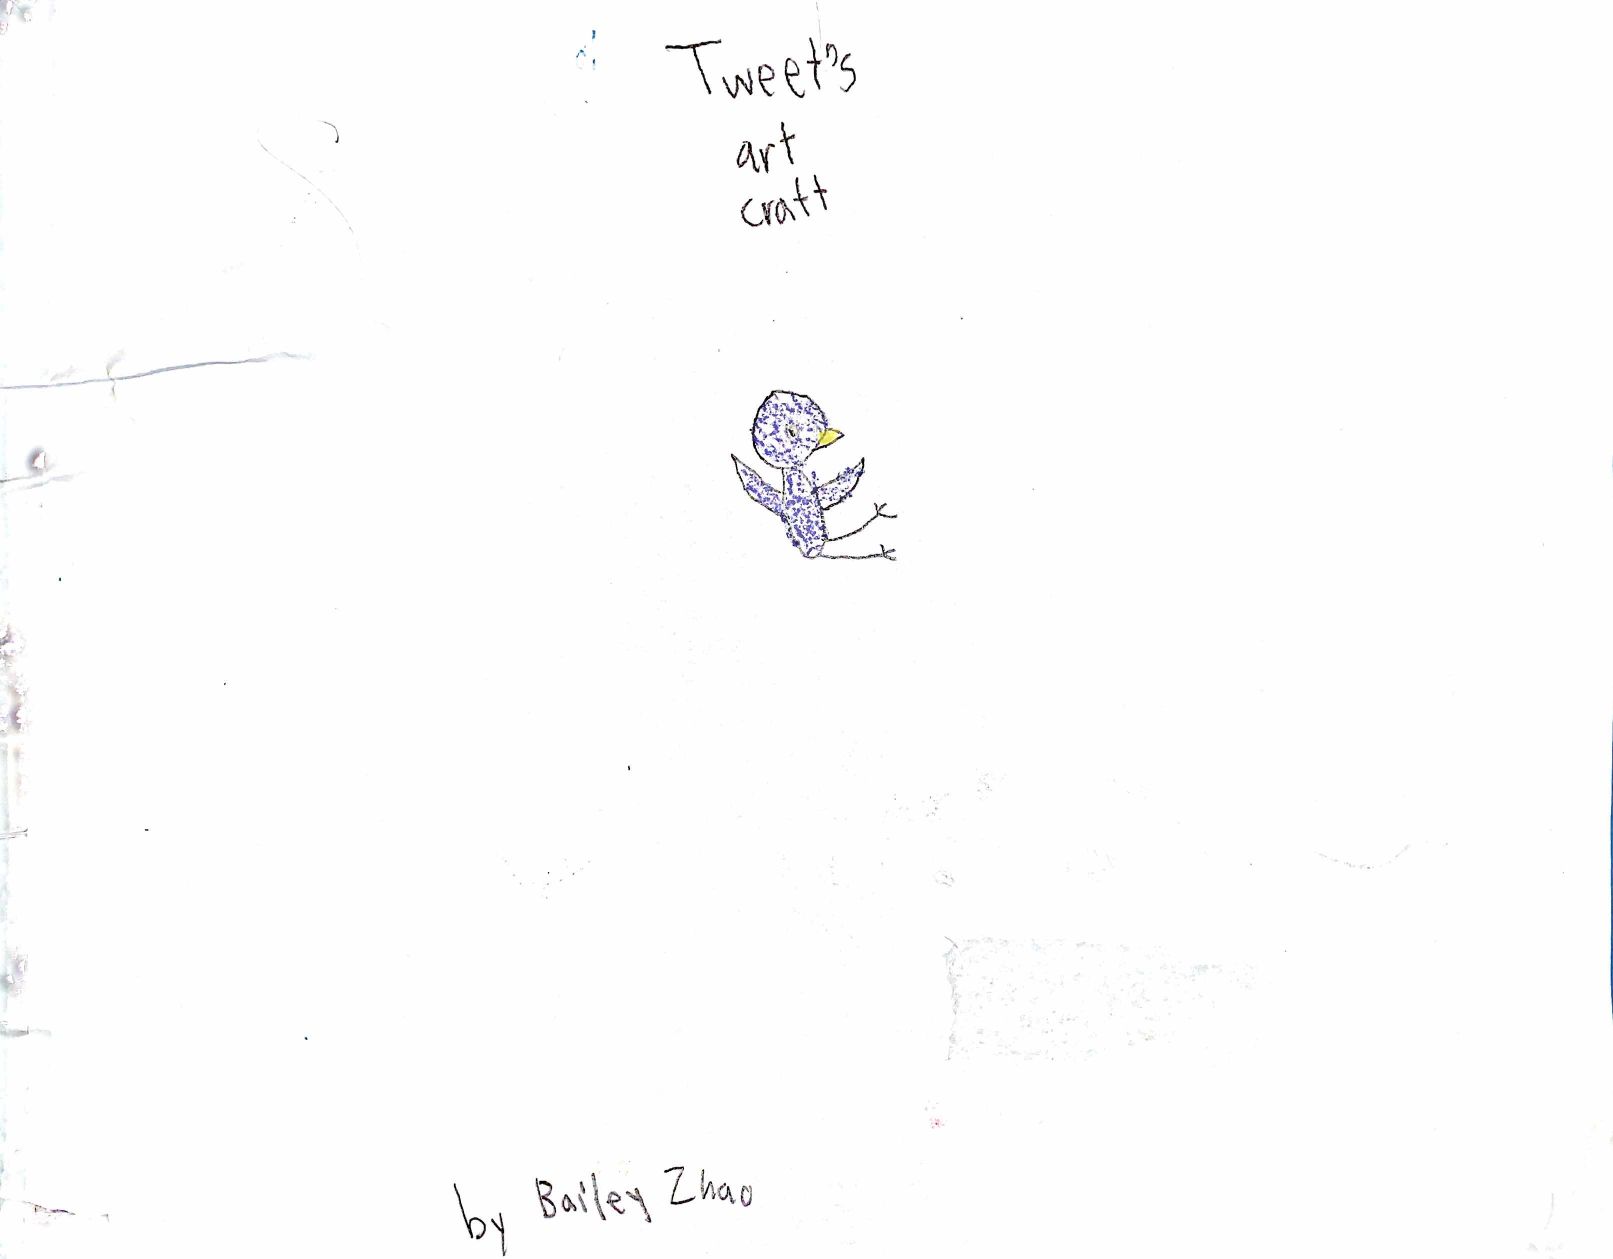 Tweet's
art
craft
by Bailey Zhao